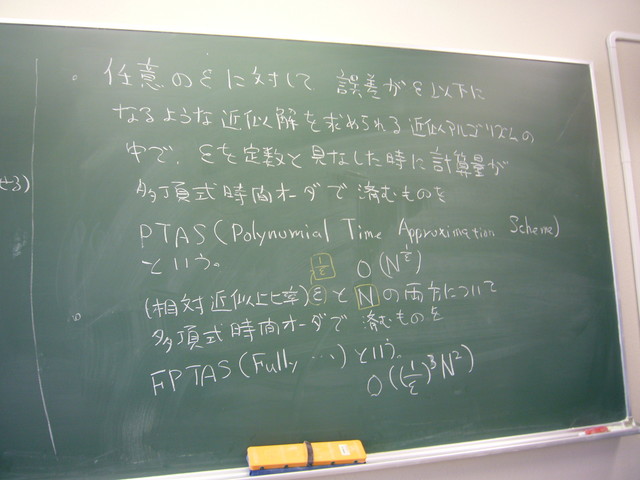 。任意のεに対して、誤差がε以下に
なるような近似解を求められる近似アルゴリズムの
中で、εを定数と見なした時に計算量が
せる)
多項式時間オーダで済むものを
PTAS(Polynomial Time Approximation Scheme)
という。
1/ε O(N^{1/ε})
。(相対近似比率)εとNの両方について
多項式時間オーダで済むものを
FPTAS(Fully ...)という。
O((1/ε)^3 N^2)